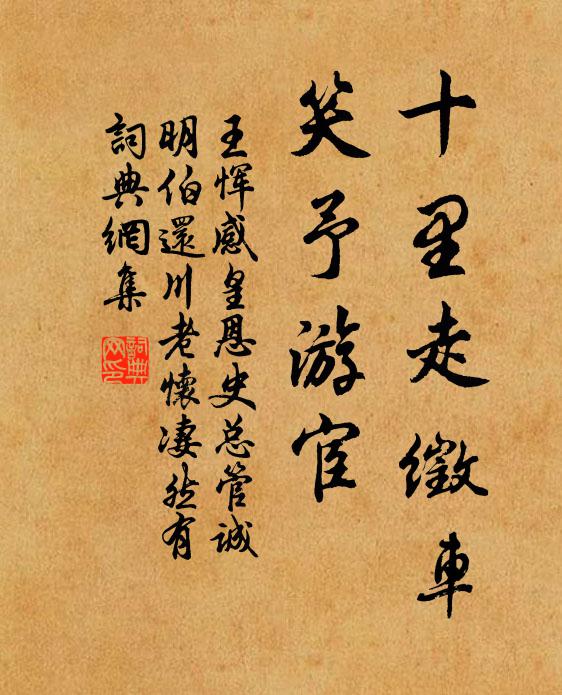 十里走徵車
笑予游宦
王惲感皇恩史总管诚
明伯還川老懷凄然有
詞典網集
詞典網印